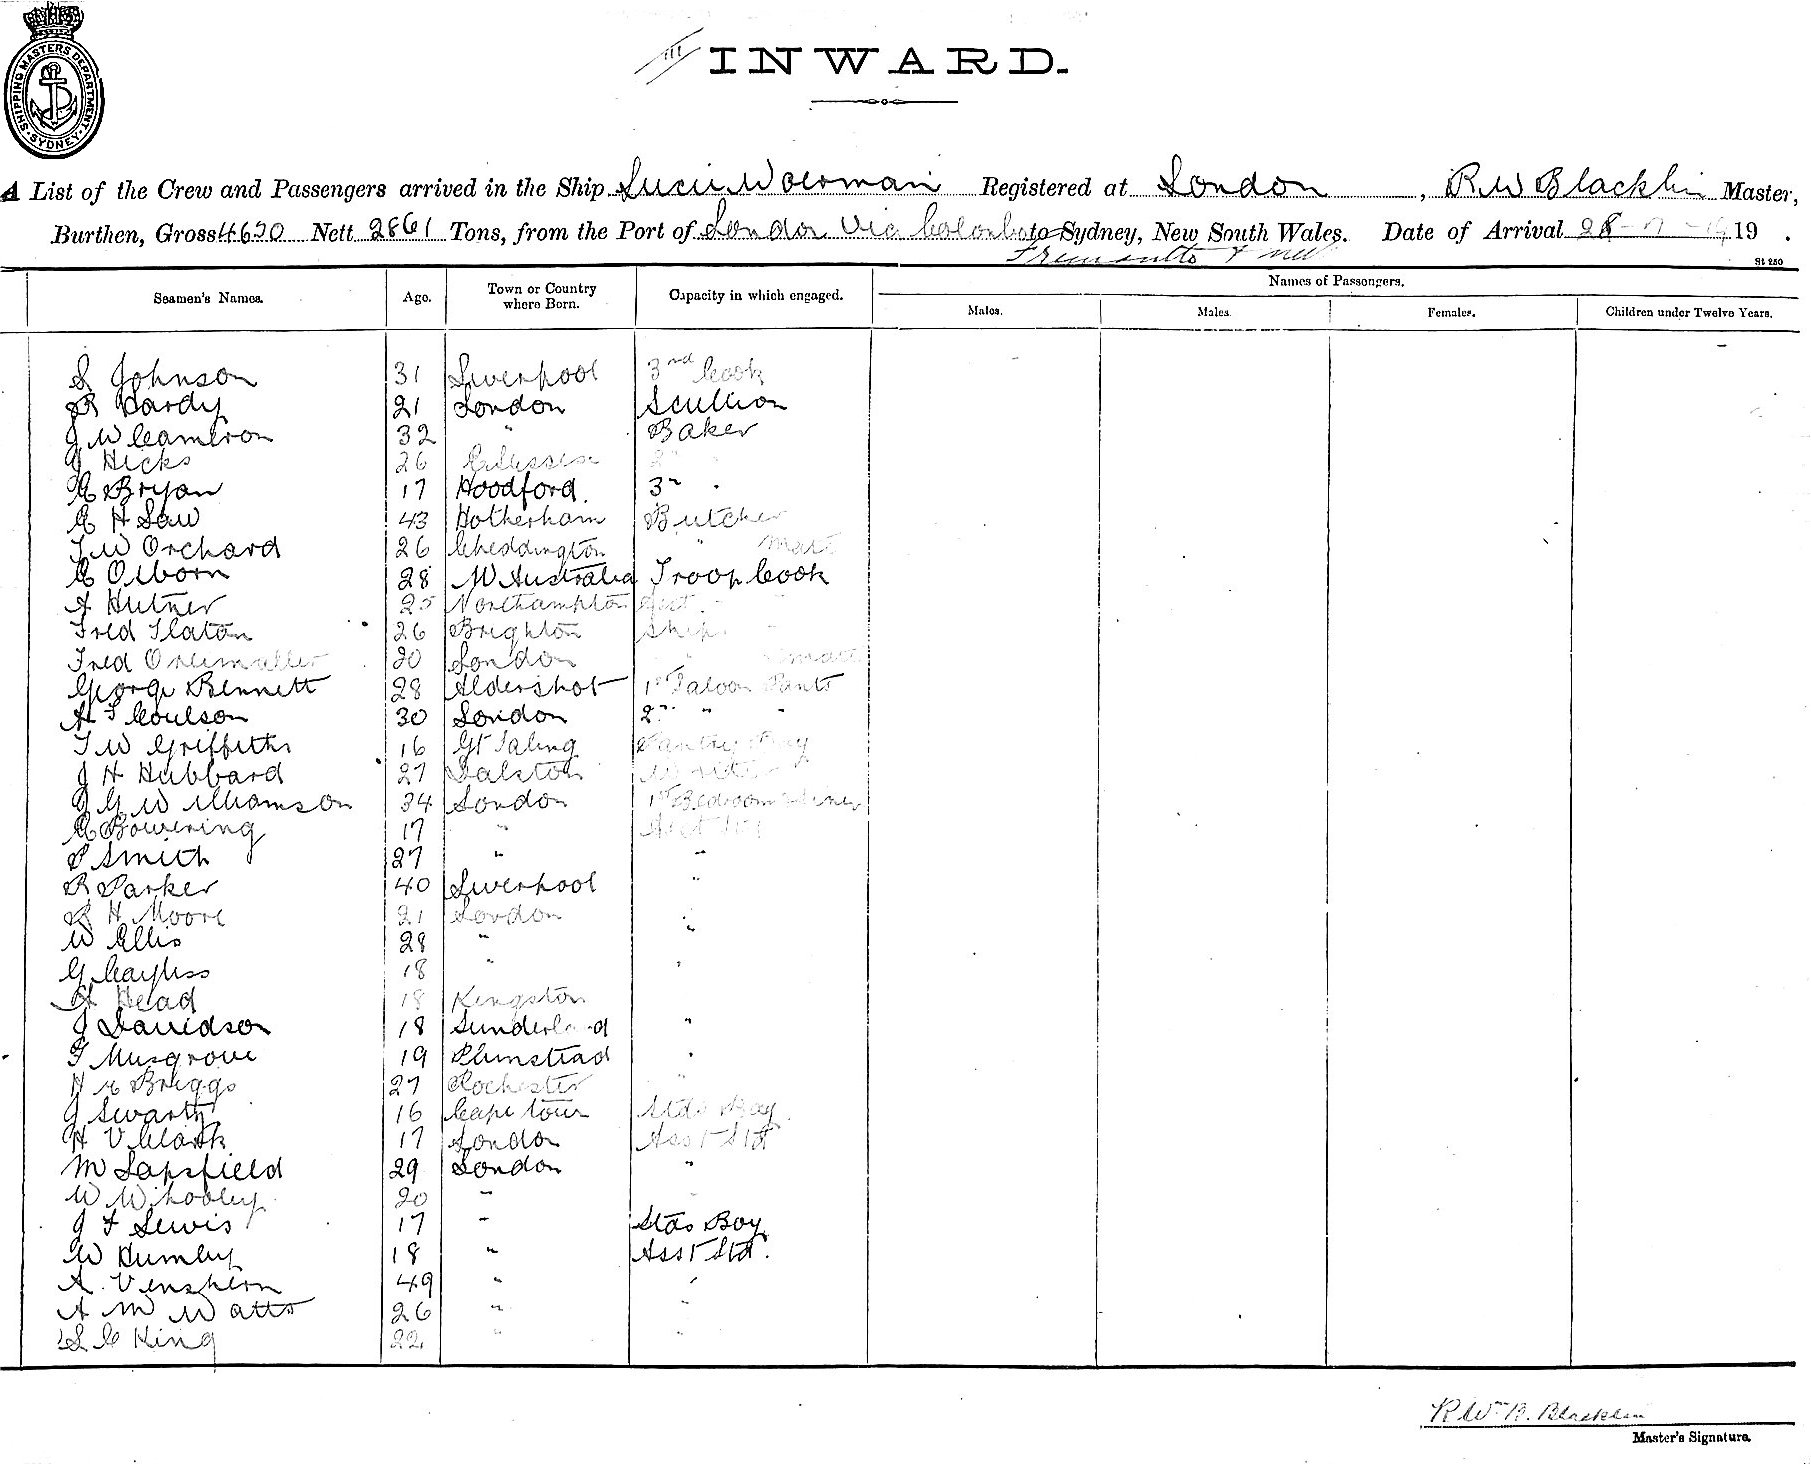 SHIPPING MASTERS DEPARTMENT. SYDNEY.
III INWARD.
A List of the Crew and Passengers arrived in the Ship Lucie Woerman Registered at London, R W Blacklin Master,
Burthen, Gross 4630 Nett 2861 Tons, from the Port of London Via Colombo to Sydney, New South Wales. Date of Arrival 28-7- 19 .
Fremantle &
St 250
Seamen's Names. Age. Town or Country where Born. Capacity in which engaged. Names of Passengers.
Males. Males. Females. Children under Twelve Years.
S Johnson 31 Liverpool 3rd Cook
R Hardy 21 London Scullion
J W Cameron 32 " Baker
J Hicks 26 2nd "
C Bryan 17 Woodford. 3rd "
C H Law 43 Rotherham Butcher
T W Orchard 26 Cheddington " Mate
C Osborn 28 W Australia Troop Cook
A Hutner 25 Northampton Asst. "
Fred Slaton 26 Brighton Ship. "
Fred 20 London " " mate
George Bennett 28 Aldershot 1st Saloon Pants
H F Coulson 30 London 2nd " "
T W Griffiths 16 Gt Yaling Pantry Boy
J H Hubbard 27 Dalston
J G Williamson 34 London 1st Bedroom
C Bowering 17 " Asst Std
P Smith 27 " "
R Parker 40 Liverpool "
R H Moore 21 London "
W Ellis 28 " "
G Bayliss 18 " "
A Head 18 Kingston "
J Davidson 18 Sunderland "
F Musgrove 19 Plumstead "
H E Briggs 27 Rochester "
J Swartz 16 Cape Town Stds Boy.
H V Clark 17 London Asst Std
M Lapsfield 29 London "
W Whooley 20 " "
J F Lewis 17 " Stds Boy
W Humby 18 " Asst Std.
A. Venshern 49 " "
A M Watts 26 " "
S C King 22 " "
R Wm B. Blacklin
Master's Signature.